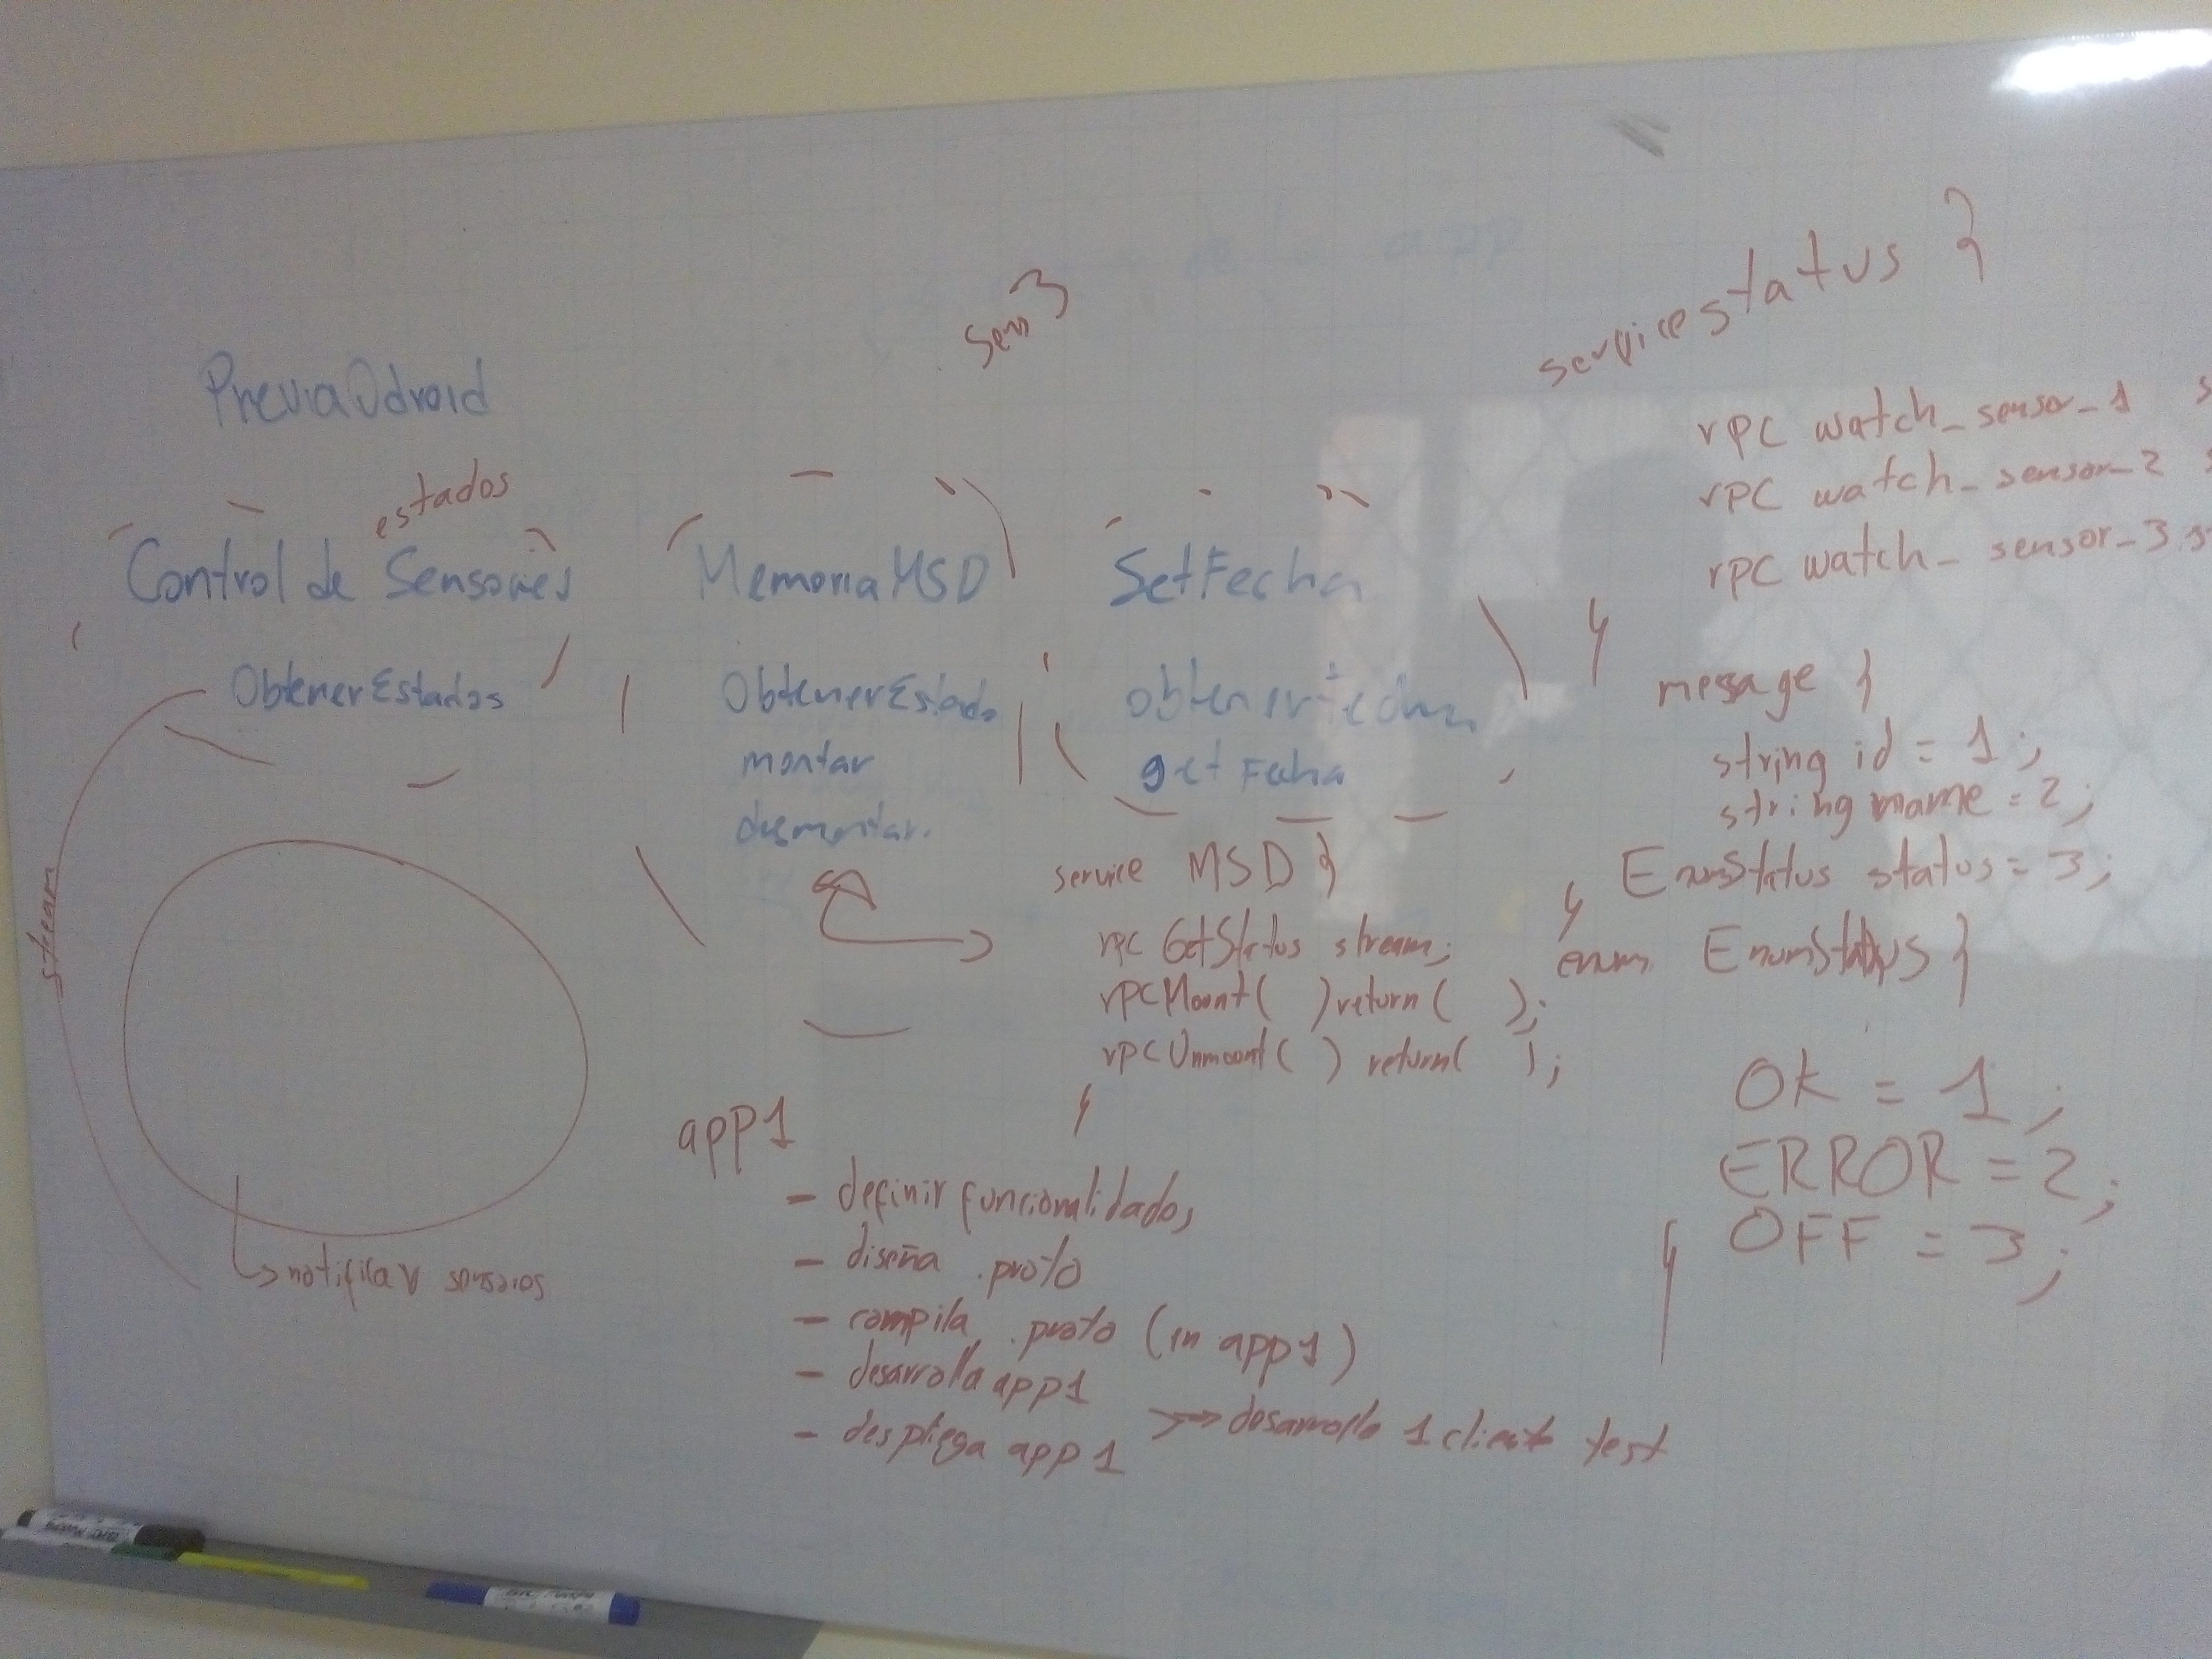 Sens 3
PreviaOdroid
estados
Control de Sensores
ObtenerEstados
stream
notificar
MemoriaMSD
ObtenerEstado
montar
desmontar.
SetFecha
obtenerFecha
getFecha
service MSD }
rpc GetStatus stream;
rpc Mount( ) return( );
rpc Unmount( ) return( );
}
app1
- definir funcionalidades
- diseña .proto
- compila .proto (in app1)
- desarrolla app1
- despliega app1
desarrolla 1 client test
service status }
rpc watch_sensor_1 s
rpc watch_sensor_2 s
rpc watch_sensor_3 s
}
message }
string id = 1;
string name = 2;
EnumStatus status = 3;
}
enum EnumStatus }
OK = 1;
ERROR = 2;
OFF = 3;
}